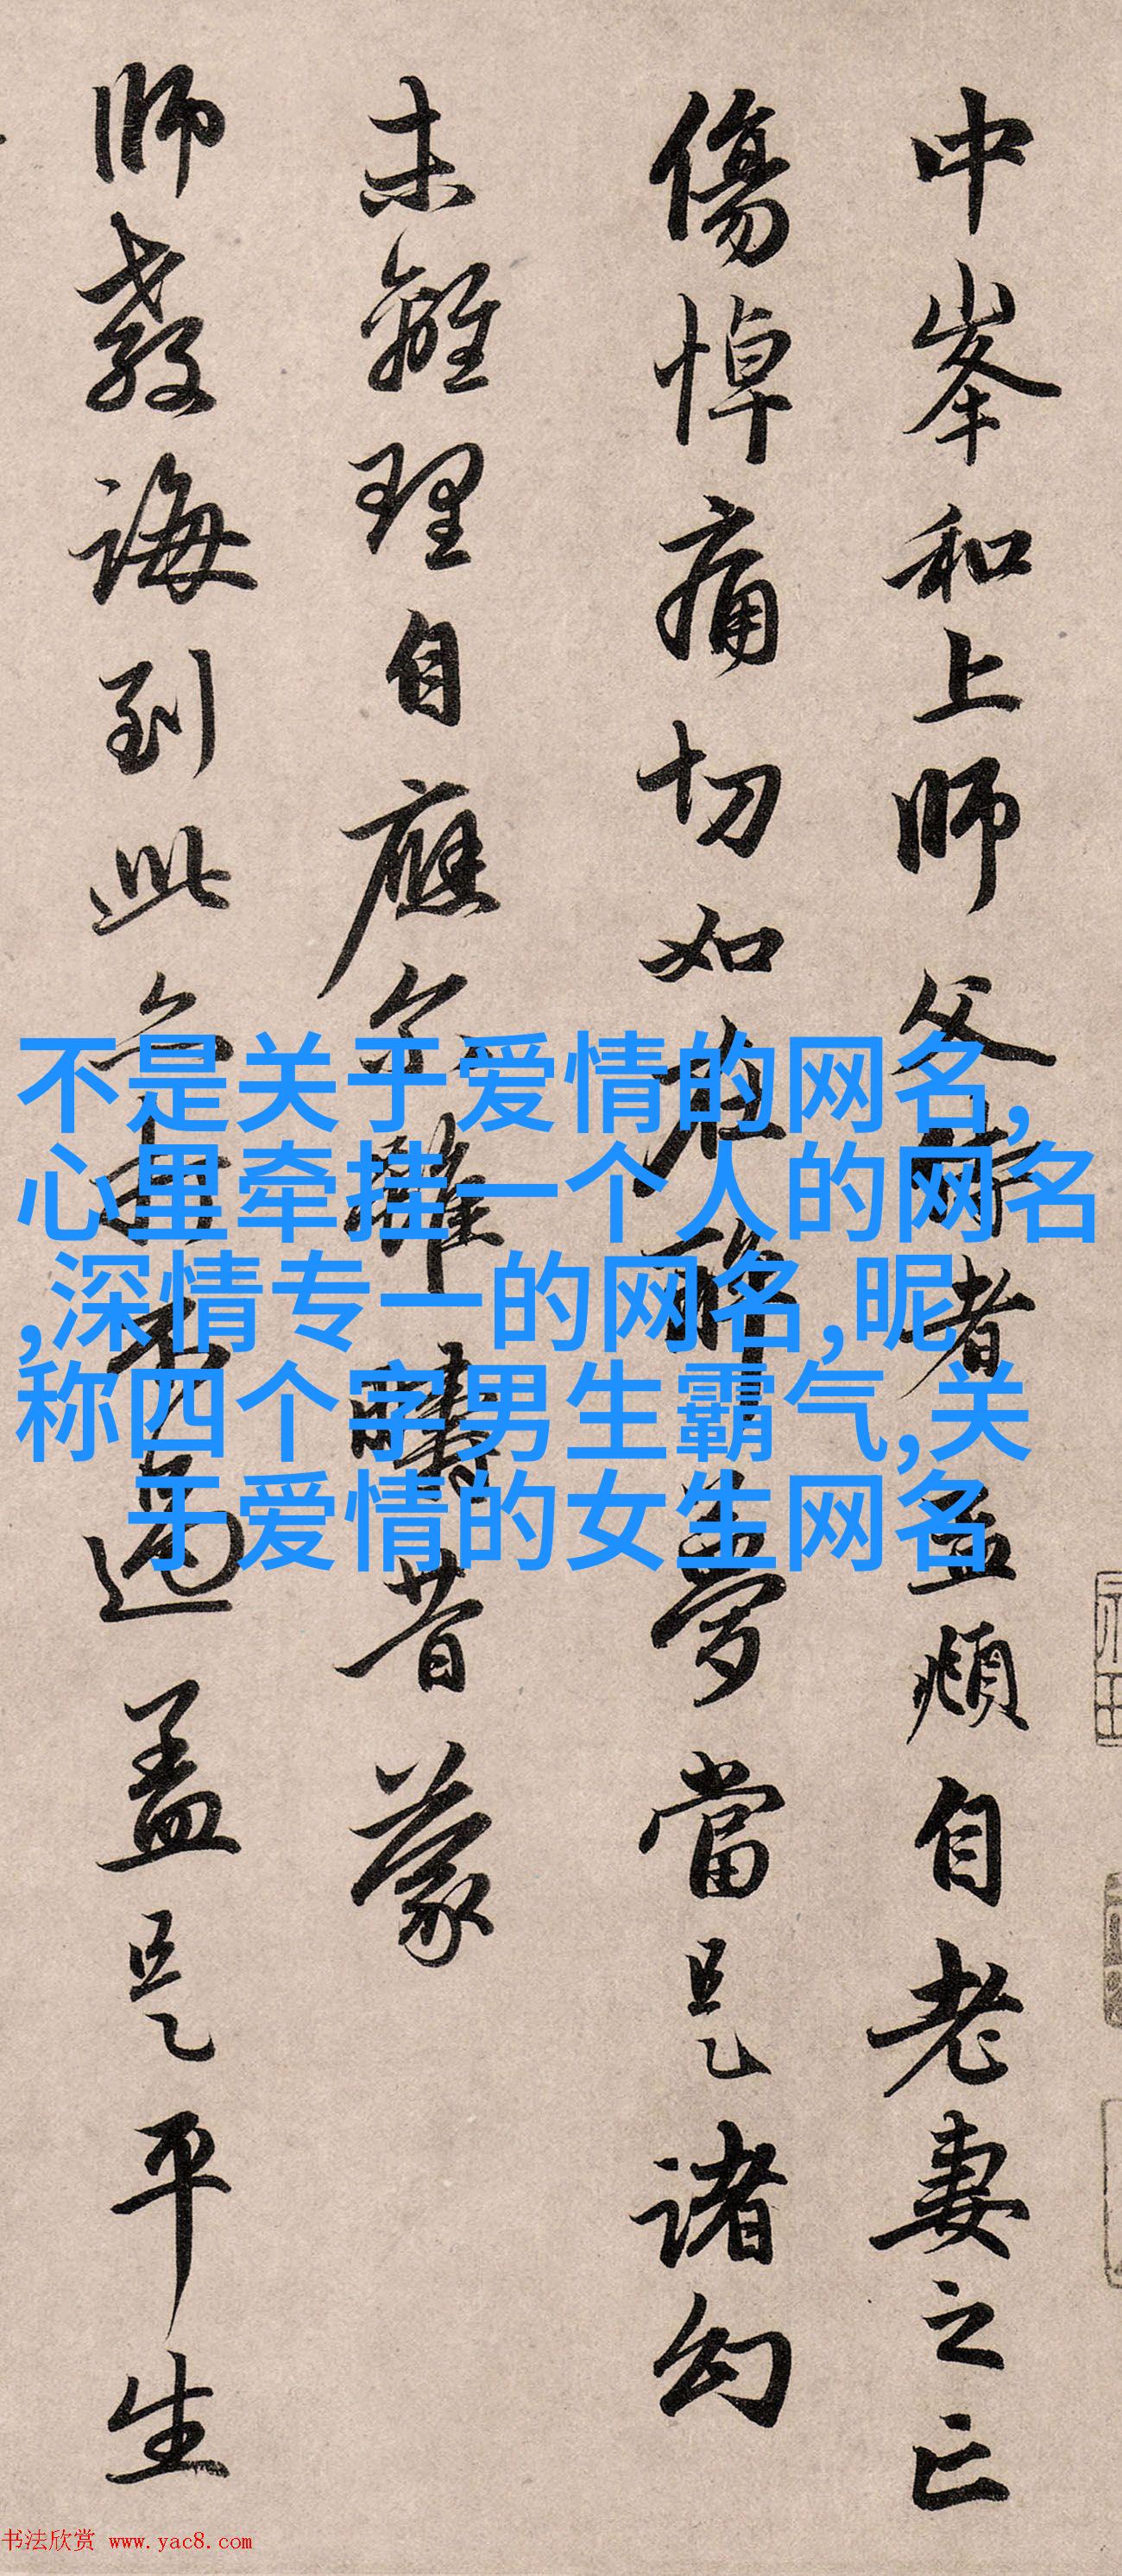 中峯和上師父侍者孟頫自老妻之亡
傷悼痛切如在醉夢當是諸幻
未離理自應尔雖疇昔蒙
師教誨到此過盖是平生
不是关于爱情的网名,
心里牵挂一个人的网名
,深情专一的网名,昵
称四个字男生霸气,关
于爱情的女生网名
书法欣赏 www.yac8.com